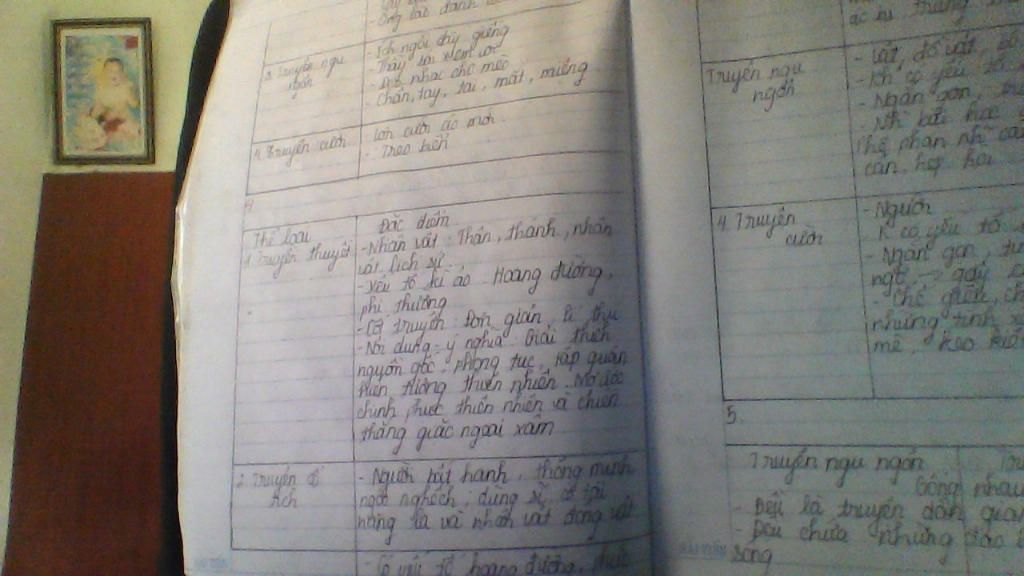 - Ông lão đánh c
3. Truyện ngụ
ngôn
- Ếch ngồi đáy giếng
- Thầy bói xem voi
- Đeo nhạc cho mèo
- Chân, tay, tai, mắt, miệng
4. Truyện cười
- Lợn cưới áo mới.
- Treo biển
4
Thể loại
Đặc điểm
1. Truyền thuyết
- Nhân vật: Thần, thánh, nhân
vật lịch sử.
- Yếu tố kì ảo: Hoang đường,
phi thường
- Cốt truyện: Đơn giản, lí thú
- Nội dung - ý nghĩa: Giải thích
nguồn gốc, phong tục, tập quán
hiện tượng thiên nhiên. Mơ ước
chinh phục thiên nhiên và chiến
thắng giặc ngoại xâm
2. Truyện cổ
tích
- Người bất hạnh, thông minh
ngốc nghếch, dũng sĩ có tài
năng lạ và nhân vật động vật
- Có yếu tố hoang đường,
Truyện ngụ
ngôn
- Vật, đồ vật,
- Ít có yếu tố
- Ngắn gọn,
- Những bài học
phê phán những
cận, hẹp hòi
4. Truyện
cười
- Người
- K có yếu tố
- Ngắn gọn,
ngờ → gây
- Chế giễu,
những tính
mê, keo kiệt
5.
Truyện ngụ ngôn
Giống nhau
- Đều là truyện dân gian
- Đều chứa những
sống